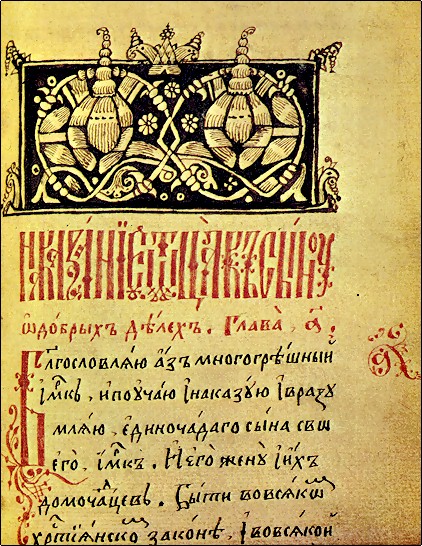 НАКАЗАНЇЕ Ѿ ѠТЦА КЪ СЫНУ
ѡ добрыхъ дѣлехъ. Глава, а҃.
Блгословляю азъ многогрѣшный
имкъ, и поучаю и наказую и вразу
мляю, единочадаго сына сво
его, имкъ. И его жену и ихъ
домочадцевъ. Быти во всякомъ
хртїянско законе, и во всякой